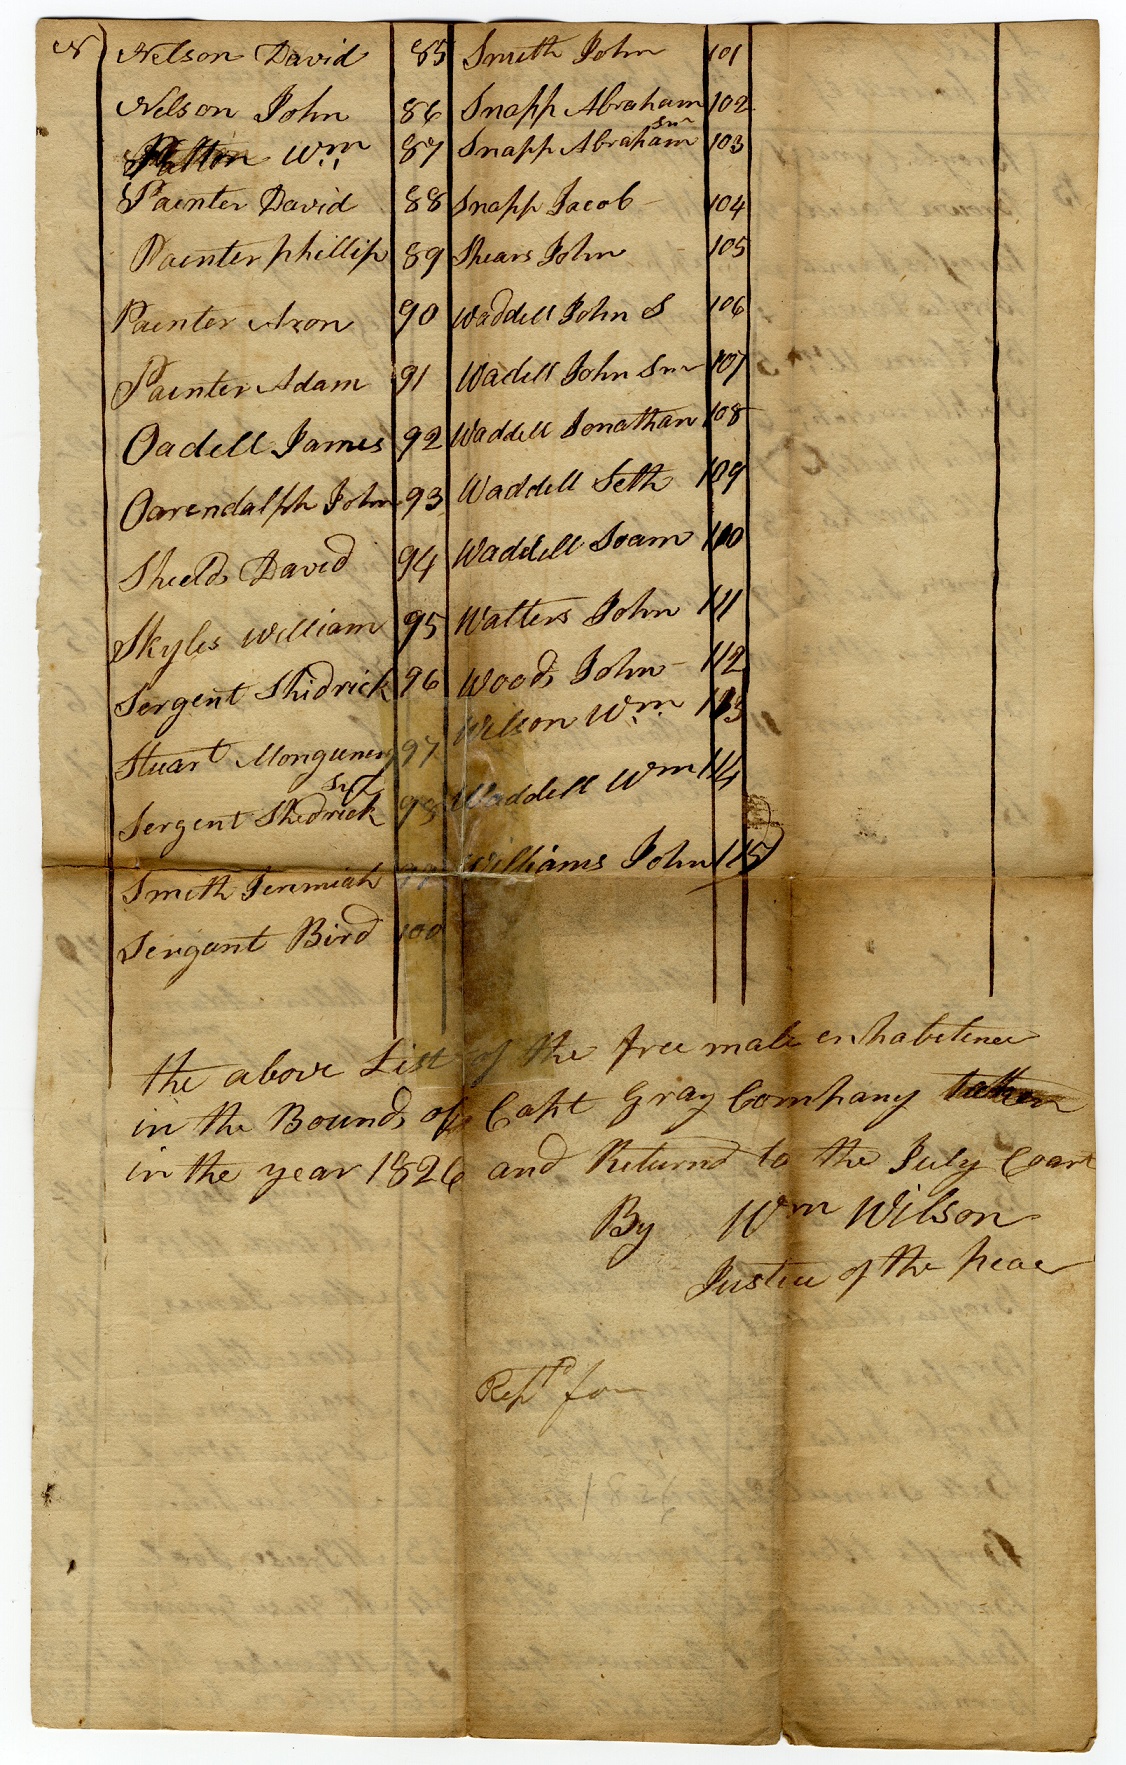 N
Nelson David 85
Nelson John 86
Patton Wm 87
Painter David 88
Painter phillip 89
Painter Aron 90
Painter Adam 91
Oadell James 92
Oarendalph John 93
Shields David 94
Skyles William 95
Sergent Shidrick 96
Stuart Mongumery 97
Sergent Shedrick 98
Smith Jeremiah 99
Sergant Bird 100
Smith John 101
Snapp Abraham 102
Snapp Abraham Snr 103
Snapp Jacob 104
Shears John 105
Waddell John S 106
Wadell John Snr 107
Waddell Jonathan 108
Waddell Seth 109
Waddell Soam 110
Watters John 111
Woods John 112
Wilson Wm 113
Waddell Wm 114
Williams John 115
the above List of the free male enhabitence
in the Bounds of Capt Gray Company taken
in the year 1826 and Returnd to the July Court
By Wm Wilson
Justice of the peace